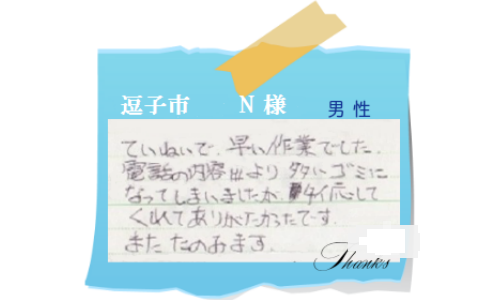 逗子市 N 様 男性
ていねいで、早い作業でした。
電話の内容より多いゴミに
なってしまいましたが、対応して
くれてありがたかったです。
またたのみます。
Thanks